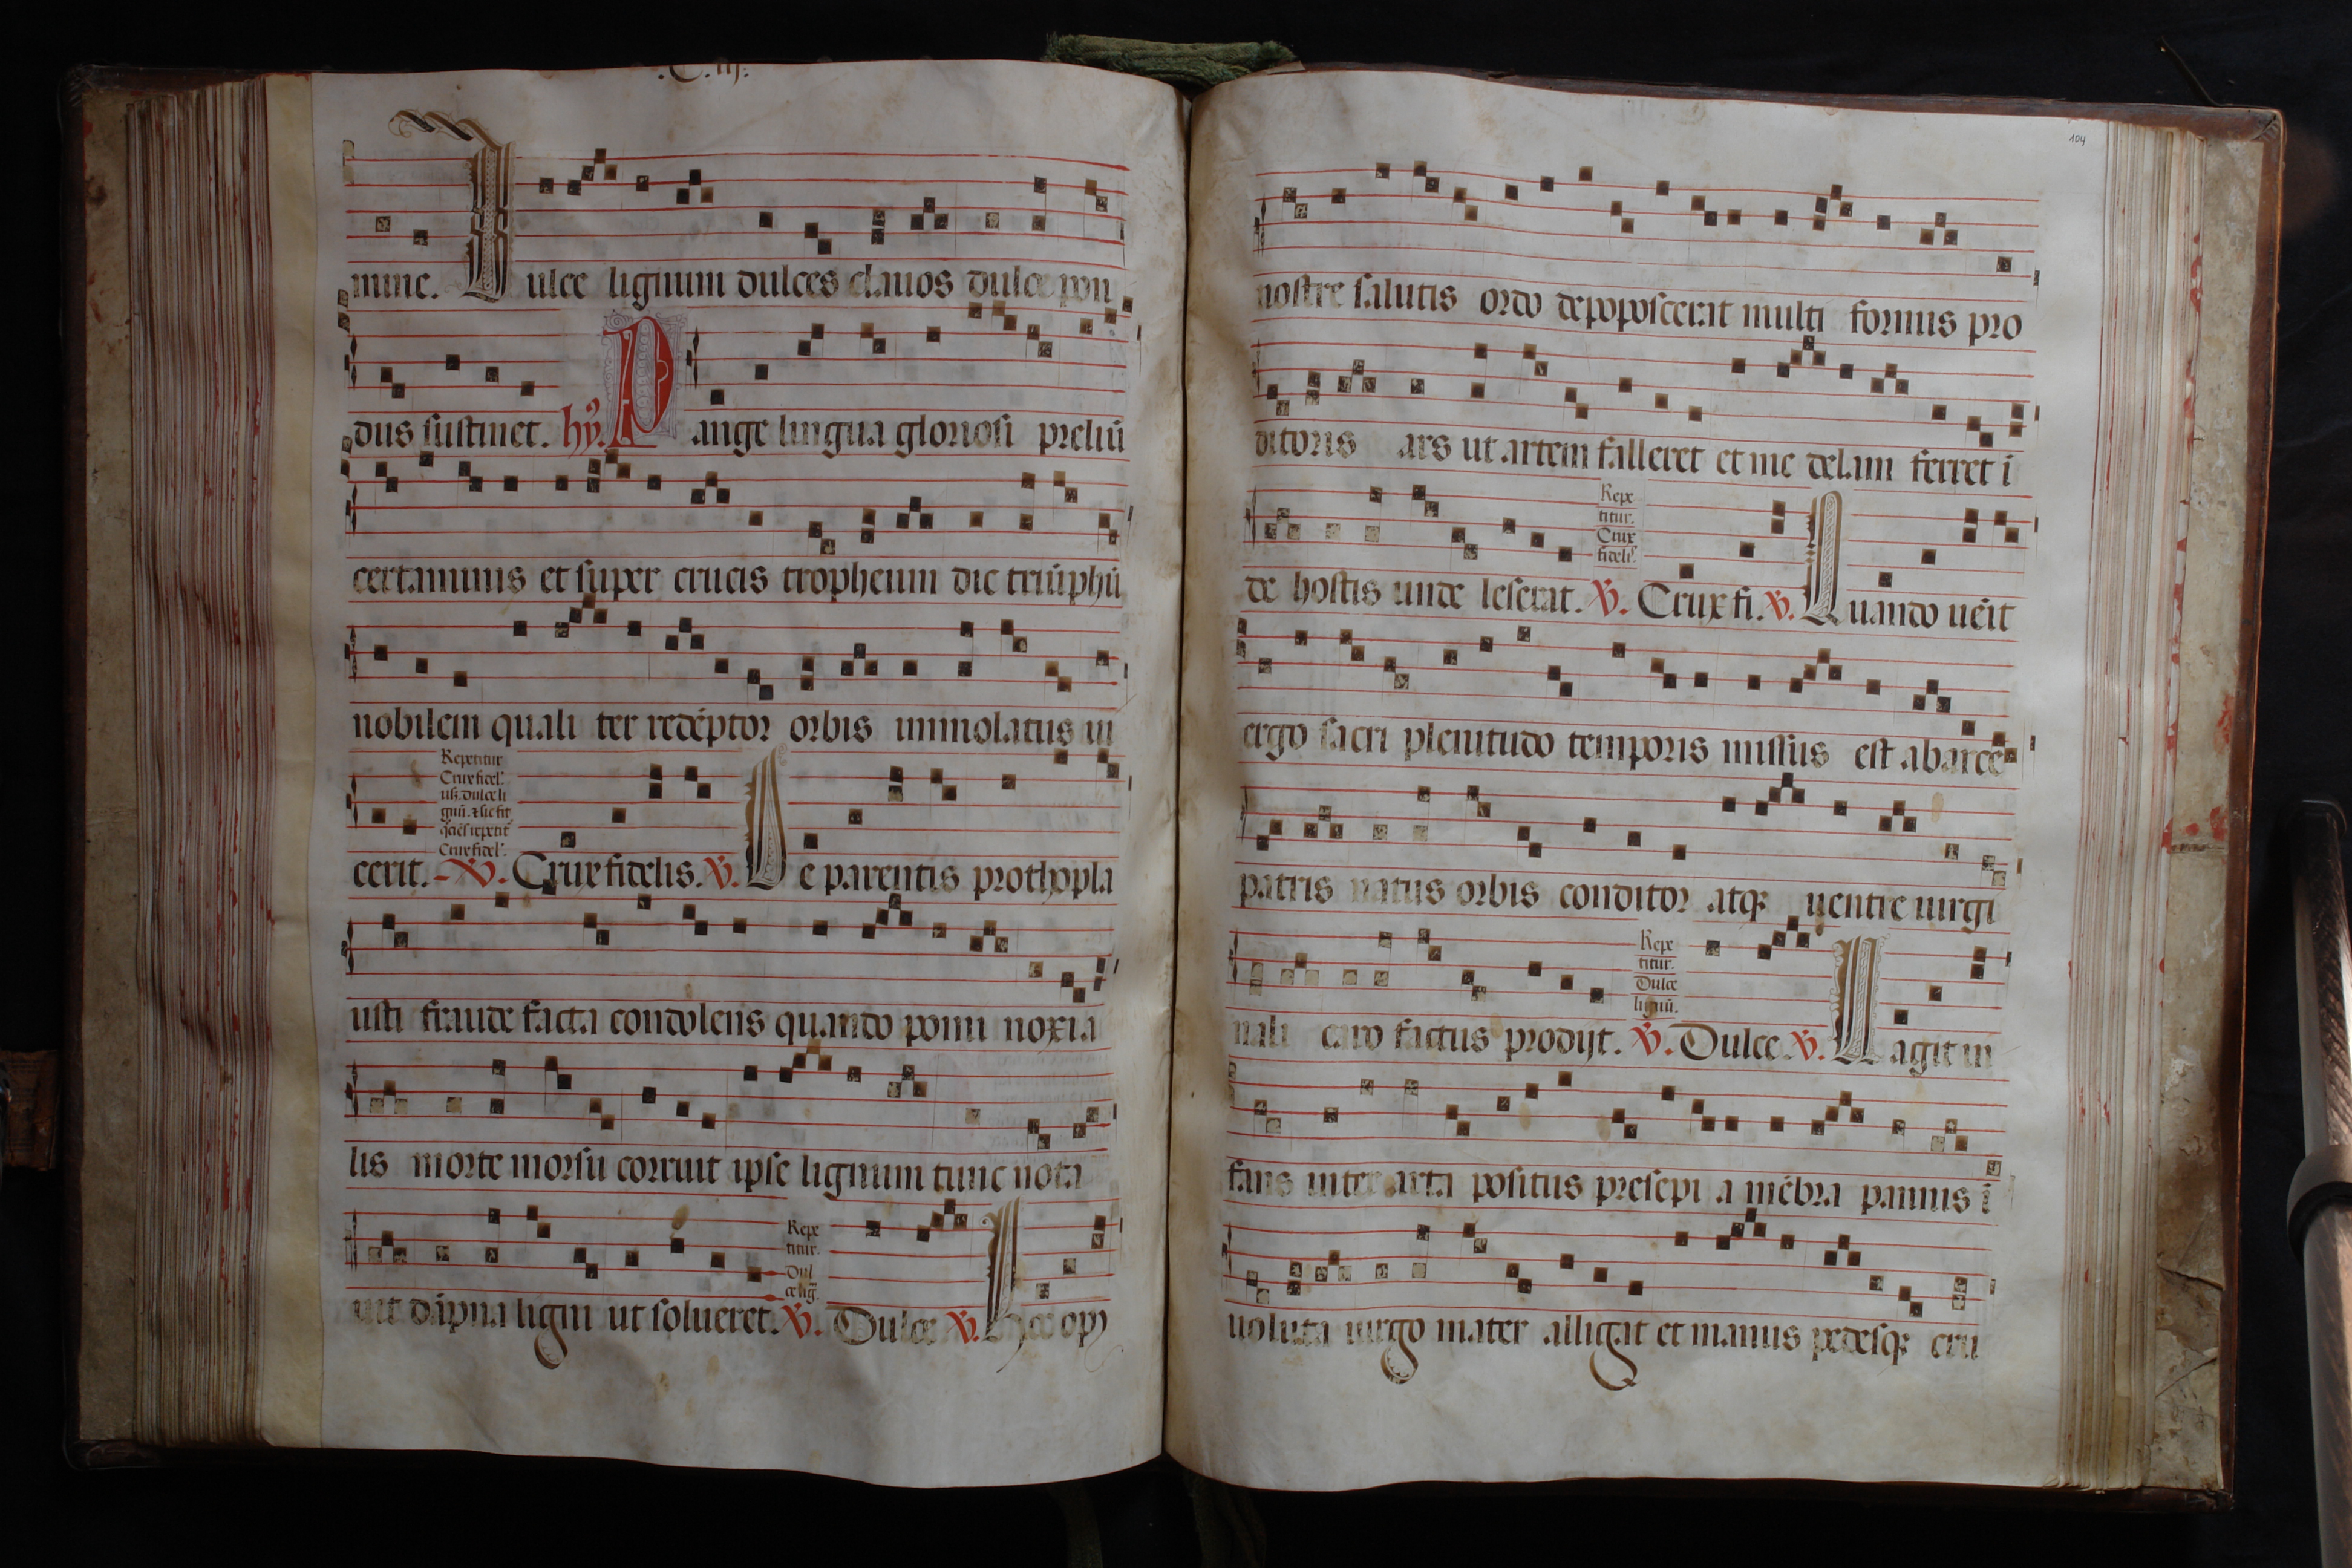 .C. iij.
mine. Dulce lignum dulces clauos dulce pon
dus sustinet. hỹ. Pange lingua gloriosi preliũ
certaminis et super crucis tropheum dic triũphũ
nobilem quali ter redẽptor orbis immolatus ui
Repetitur
Crux fidel'.
usq; dulce li
gnũ. ⁊ sic fit
Crux fidel'.
cerit. ℣. Crux fidelis. ℣. De parentis prothopla
usti fraude facta condolens quando pomi noxia
lis morte morsu corruit ipse lignum tunc nota
Repe
titur.
Dul
ce lig̃.
uit dãpna ligni ut solueret. ℣. Dulce ℣. Hoc opꝰ
104
nostre salutis ordo depoposcerat multi formis pro
ditoris ars ut artem falleret et me delam ferret ĩ
Repe
titur.
Crux
fideli'.
de hostis unde leserat. ℣. Crux fi. ℣. Quando uẽit
ergo sacri plenitudo temporis missus est abarce
patris natus orbis conditor atq; uentre uirgi
Repe
titur.
Dulce
lignũ.
nali caro factus prodijt. ℣. Dulce ℣. Uagit in
fans inter arta positus presepi a mẽbra pannis ĩ
uoluta uirgo mater alligat et manus pedesq; cru